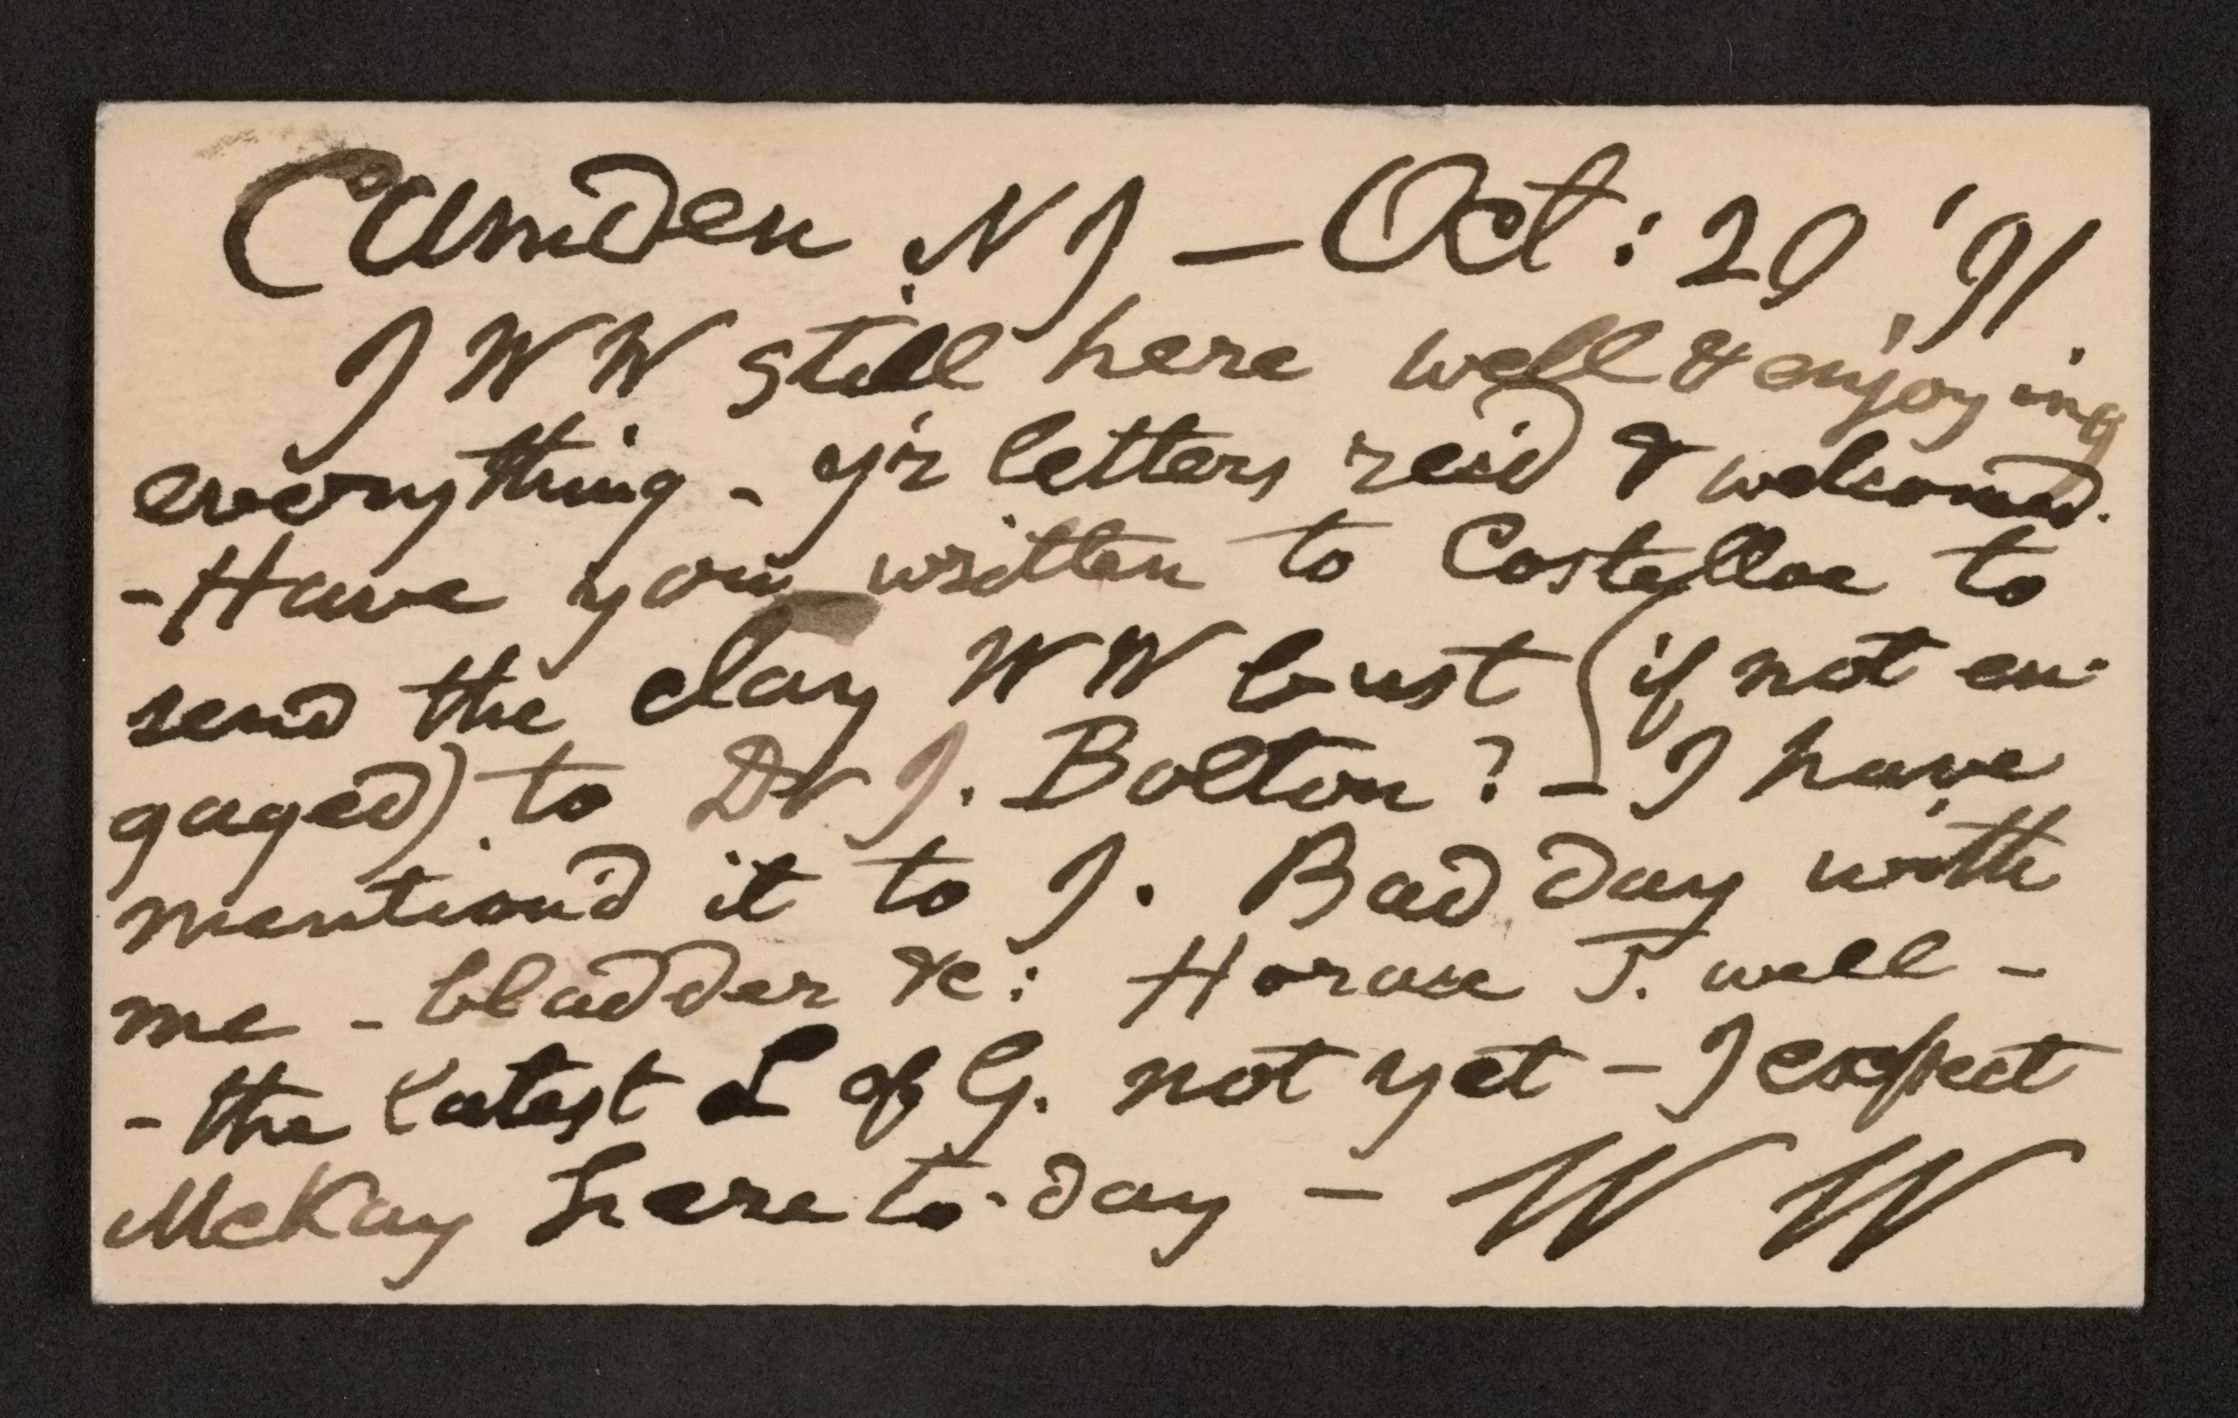 Camden NJ — Oct: 20 '91
J W W still here well & enjoying
everything - y'r letters rec'd & welcomed.
- Have you written to Costelloe to
send the clay WW bust (if not en-
gaged) to Dr J. Bolton? — I have
mention'd it to J. Bad day with
me - bladder &c: Horace T. well -
- the latest L of G. not yet - I expect
McKay here to-day — W W